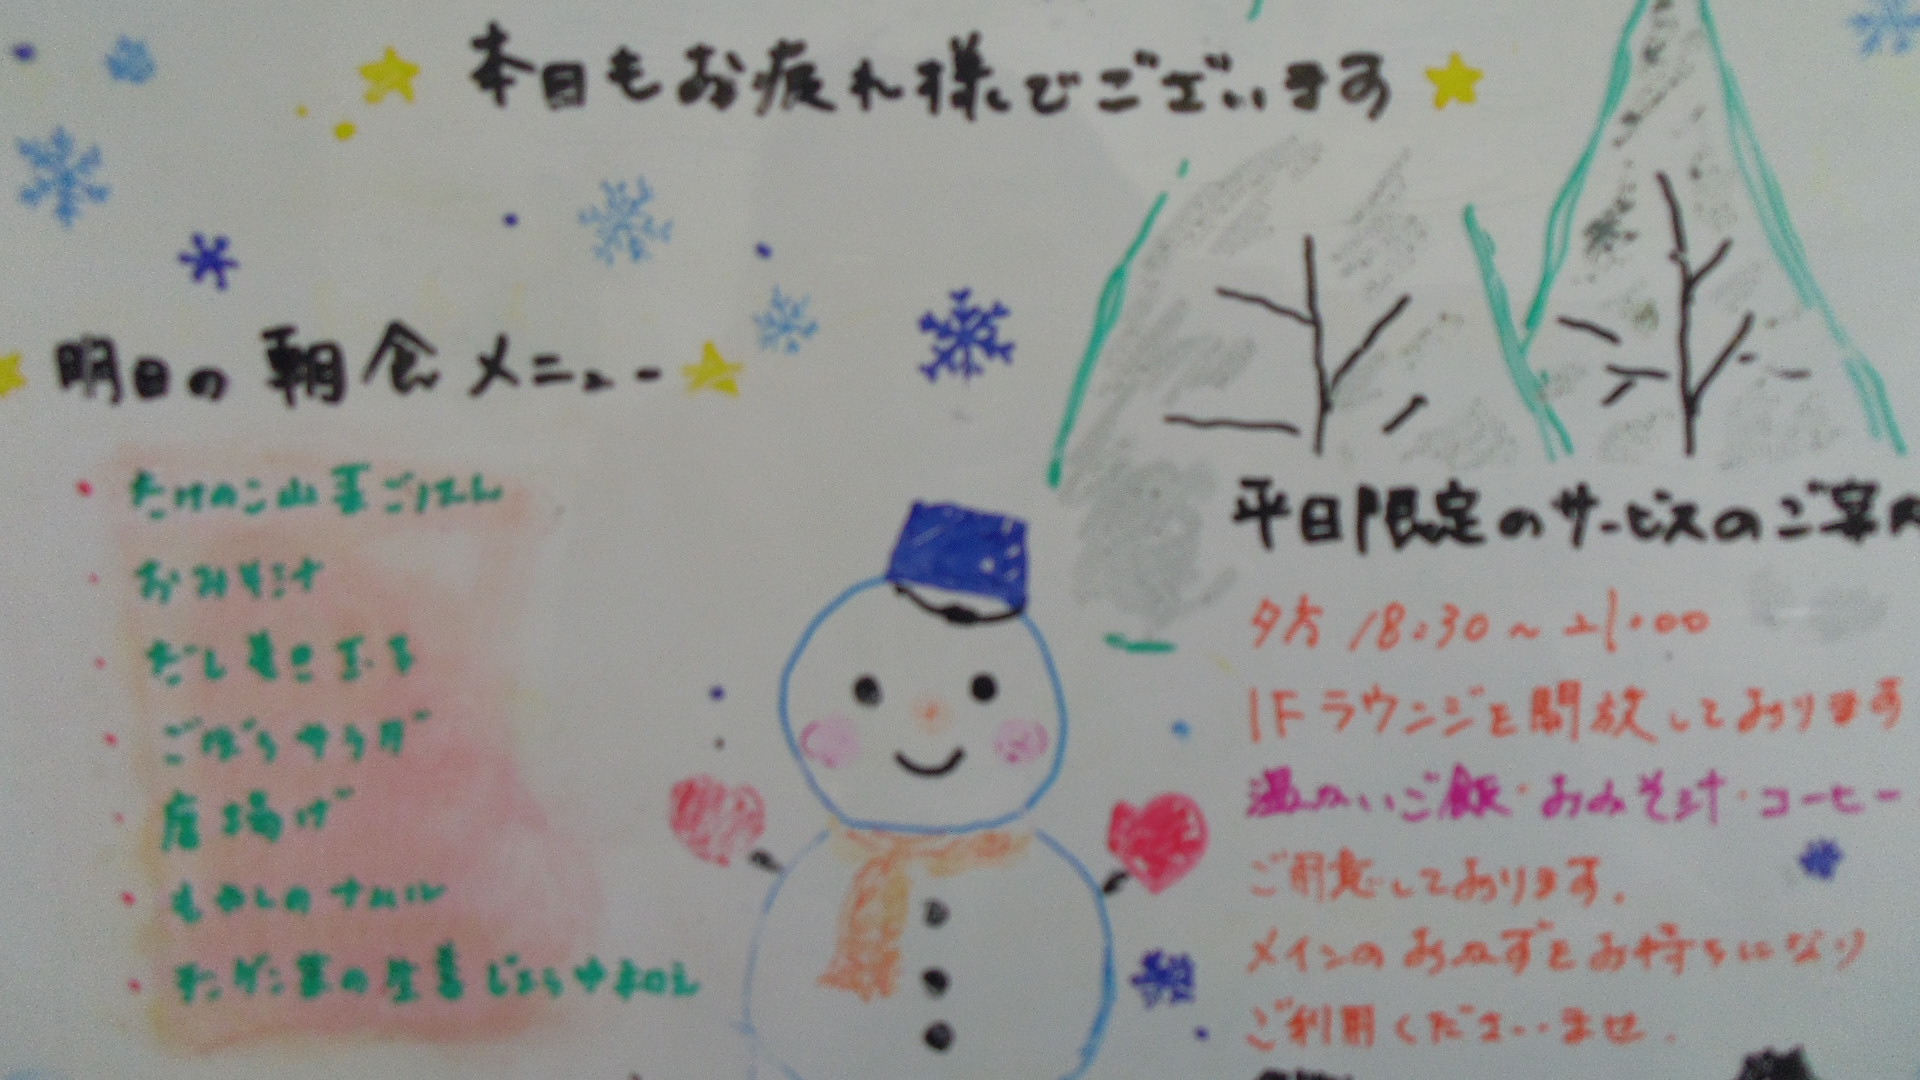 本日もお疲れ様でございます
明日の朝食メニュー
・たけのこ山菜ごはん
・おみそ汁
・だし巻き玉子
・ごぼうサラダ
・唐揚げ
・もやしのナムル
・チンゲン菜の生姜じょうゆ和え
平日限定のサービスのご案内
夕方 18:30~21:00
1Fラウンジを開放しております
温かいご飯・おみそ汁・コーヒー
ご用意しております.
メインのおかずをお持ちになり
ご利用くださいませ.